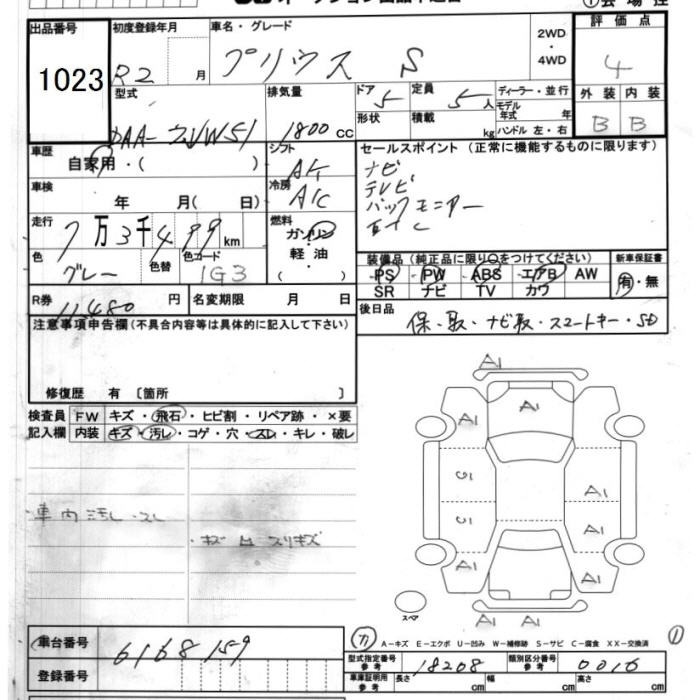 出品番号 初度登録年月 車名・グレード 2WD・4WD 評価点
1023 R2 月 プリウス S 4
外装 内装
B B
型式 排気量 ドア 定員 ディーラー・並行
DAA-ZVW51 1800 CC 5 5人 モデル年式 年
形状 積載 kg ハンドル 左・右
車歴 シフト セールスポイント (正常に機能するものに限ります)
自家用・( ) A/t ナビ
車検 冷房 テレビ
年 月( 日) A/C バックモニター
走行 燃料
7万3千499km ガソリン
色 色替 色コード 軽油
グレー 1G3 ( )
装備品 (純正品に限り○をつけてください) 新車保証書
PS PW ABS エアB AW 有・無
SR ナビ TV カワ
R券 11480 円 名変期限 月 日
後日品 保・取・ナビ取・スマートキー・SD
注意事項申告欄(不具合内容等は具体的に記入して下さい)
修復歴 有 〔箇所 〕
検査員 FW キズ・飛石・ヒビ割・リペア跡・×要
記入欄 内装 キズ・汚レ・コゲ・穴・スレ・キレ・破レ
・車内汚レ・スレ
・キズ凹スリキズ
A1
A1 A1
A1
A1
A1 A1
A1 A1
スペア
A-キズ E-エクボ U-凹み W-補修跡 S-サビ C-腐食 XX-交換済 ①
車台番号 6168159
型式指定番号 参考 18208 類別区分番号 参考 0016
登録番号
車庫証明用 参考 長さ cm 幅 cm 高さ cm